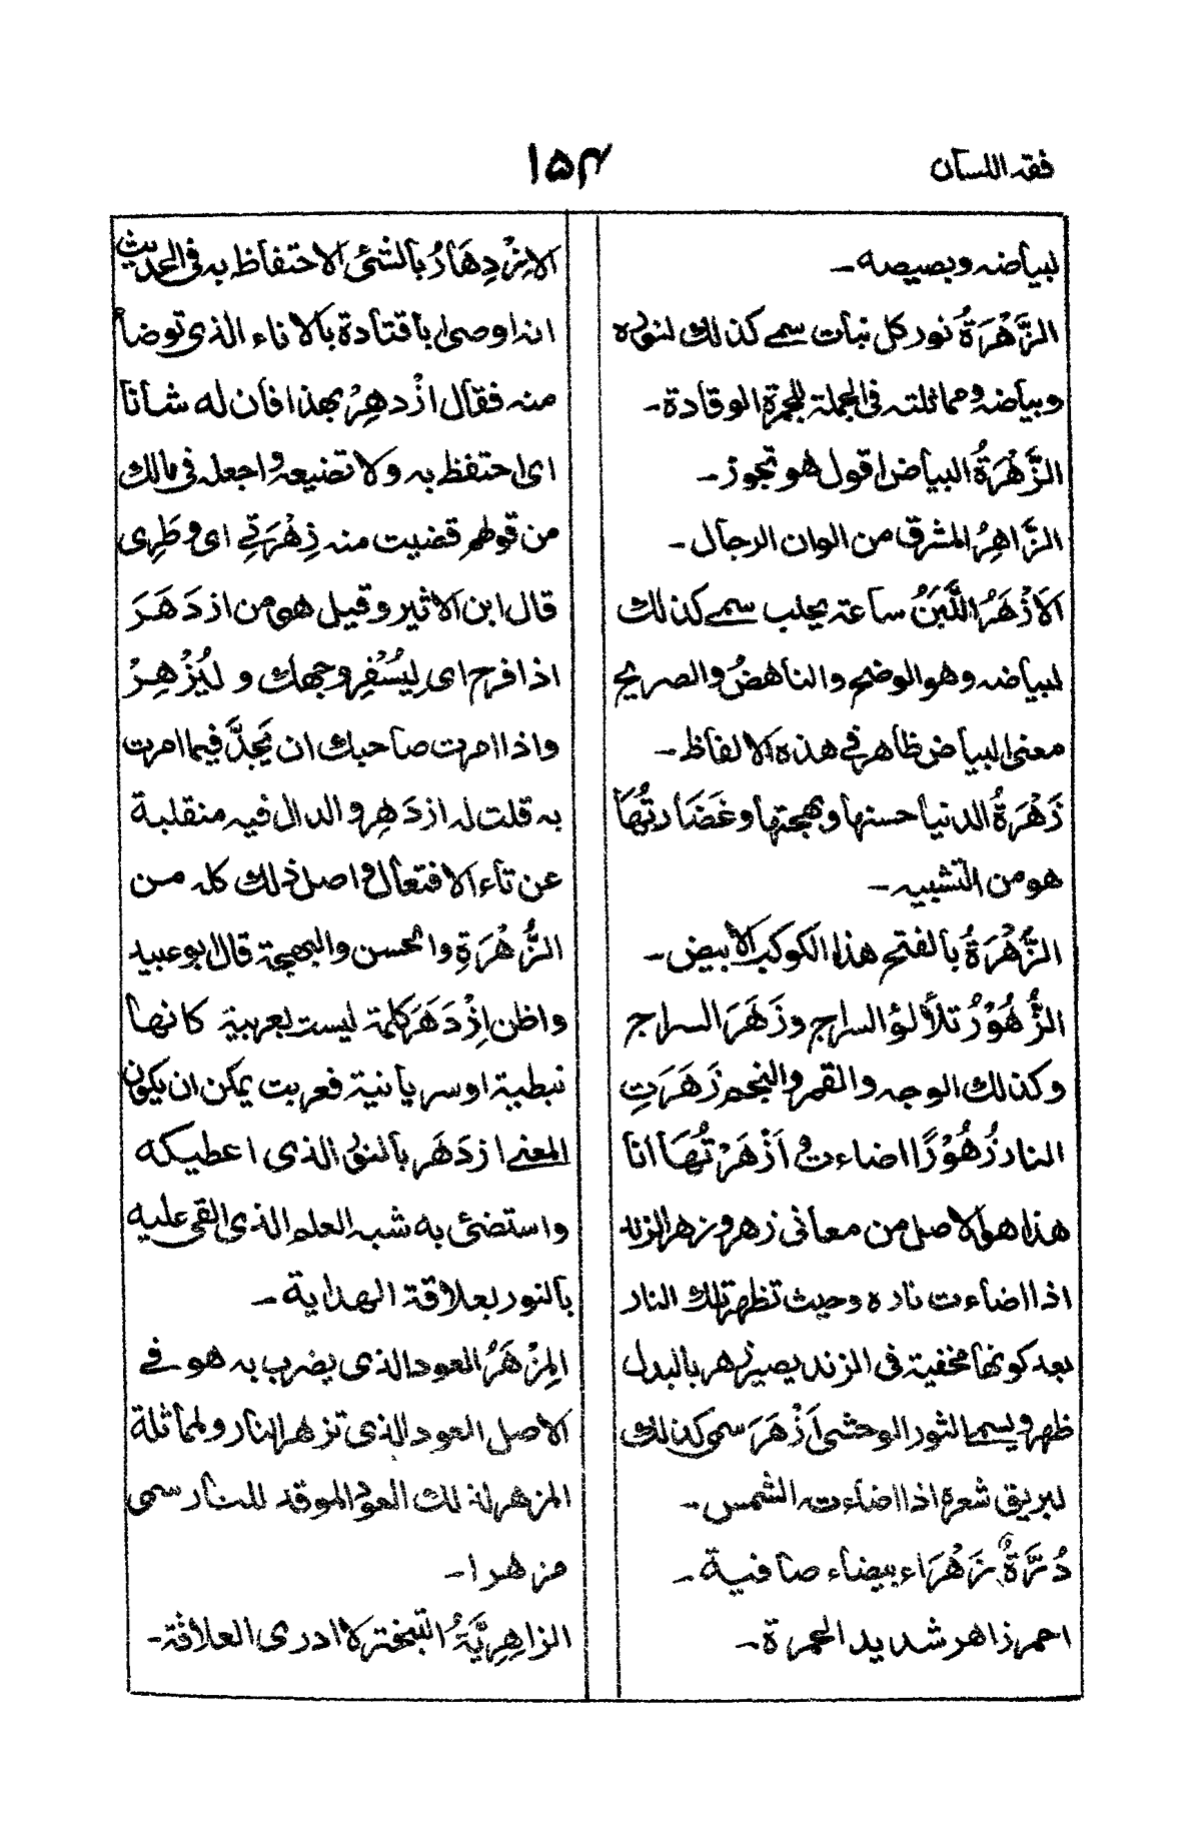 فقه اللسان
١٥٤
لبياضه وبصيصه۔
الزَّهْرَةُ نور كل نبات سمے كذلك لنوره
وبياضه ومماثلته فى الجملة للجمرة الوقادة۔
الزَّهْرَةُ البياض اقول هو تجوز۔
الزَّاهِرُ المشرق من الوان الرجال۔
اَلْاَزْهَرُ اللَّبَنُ ساعة يحلب سمے كذلك
لبياضه وهو الوضح والناهضُ والصريح
معنى البياض ظاهر فے هذه الالفاظ۔
زَهْرَةُ الدنيا حسنها وبهجتها وغَضَارتُهَا
هو من التشبيه۔
الزُّهَرَةُ بالفتح هذا الكوكب الأبيض۔
الزُّهُوْرُ تلألؤ السراج وزَهَرَ السراج
وكذلك الوجه والقمر والنجم زَهَرَتِ
النار زُهُوْرًا اضاءت و اَزْهَرْتُهَا انا
هذا هو الاصل من معانى زهر وزهر الزند
اذا اضاءت ناره وحيث تظهر تلك النار
بعد كونها مخفية فى الزند يصير زهر بالبدل
ظهر ويسمے الثور الوحشى اَزْهَرَ سمى كذلك
لبريق شعرة اذا اضاءت الشمس۔
دُرَّةٌ زَهْرَاء بيضاء صافية۔
احمر زاهر شديد الحمرة۔
الاِزْدِهَارُ بالشئ الاحتفاظ به فى الحديث
انه اوصى ابا قتادة بالاناء الذى توضأ
منه فقال ازْدهِرْ بهذا فان له شانا
اى احتفظ به ولا تضيعه واجعله فى بالك
من قولهم قضيت منه زِهْرَتِي اى وطَرِى
قال ابن الاثير وقيل هى من ازدَهَرَ
اذا فرح اى لِيُسْفِر وجهك و ليُزْهِرْ
واذا امرت صاحبك ان يَجِدَّ فيما امرت
به قلت له ازدَهِر والدال فيه منقلبة
عن تاء الافتعال واصل ذلك كله من
الزُّهْرَةِ والحسن والبهجة قال ابو عبيد
واظن اِزْدَهَرَ كلمة ليست بعربية كانها
نبطية او سريانية فعربت يمكن ان يكون
المعنے ازدَهَر بالنور الذى اعطيكه
واستضئ به شبه العلم الذى القى عليه
بالنور بعلاقة الهداية۔
المِزْهَرُ العود الذى يضرب به هو فے
الاصل العود الذى تزهر النار ولمماثلة
المزهر لذلك العود الموقد للنار سمى
مزهرا۔
الزاهِرِيَّةُ التبختر لا ادرى العلاقة۔